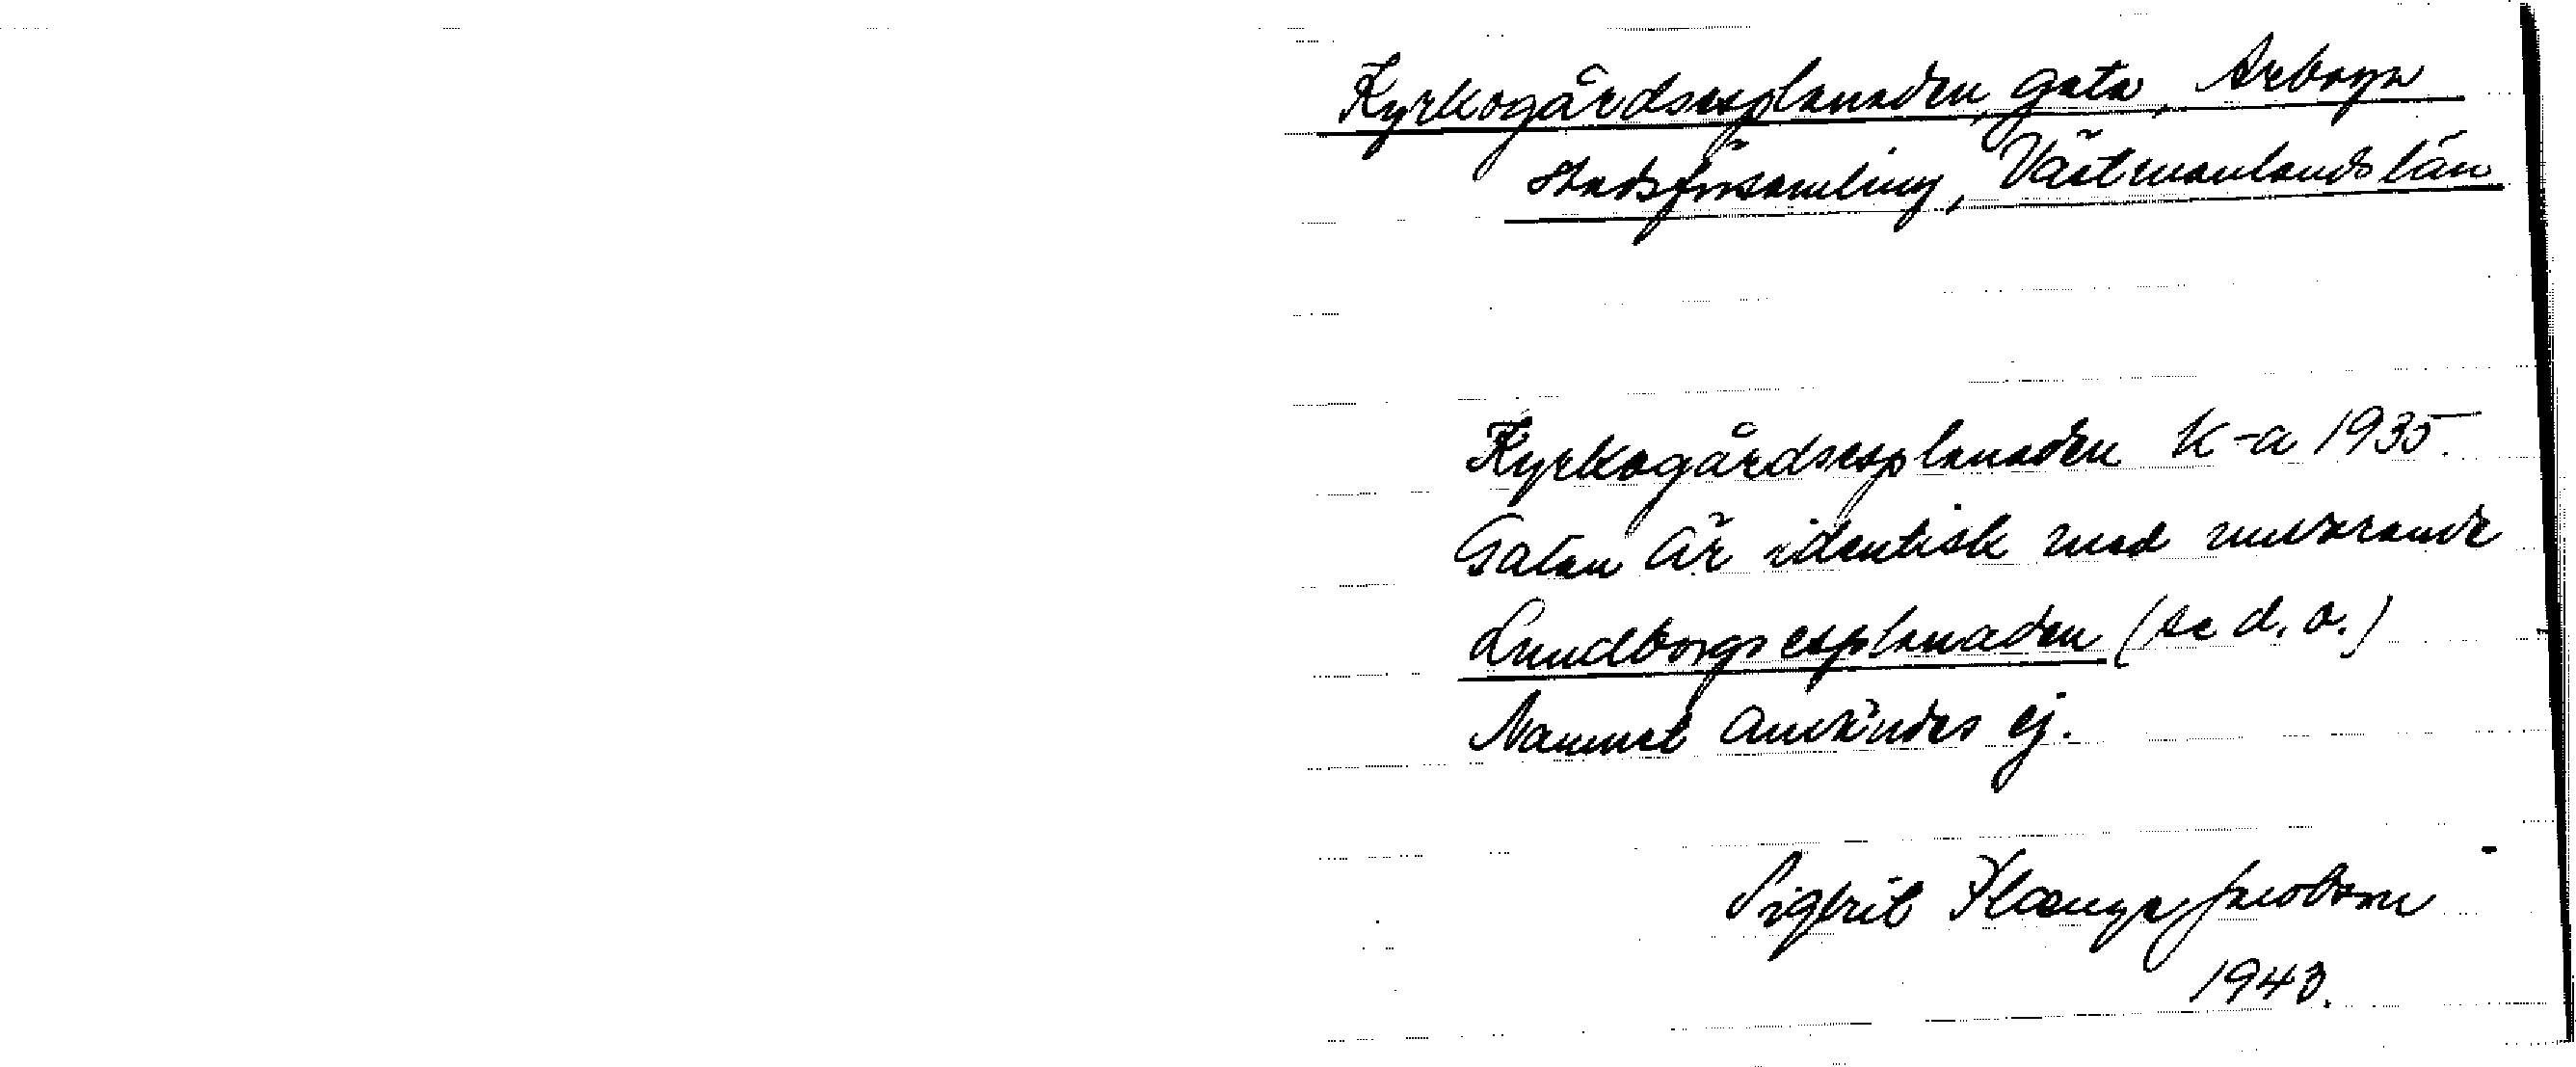 Kyrkogårdsesplanaden, gata, Arboga
stadsförsamling, Västmanlands län
Kyrkogårdsesplanaden K-a 1935.
Gatan är identisk med nuvarande
Lundborgsesplanaden (se d. o.)
Namnet användes ej.
Sigbrit Plænge Jacobson
1943.